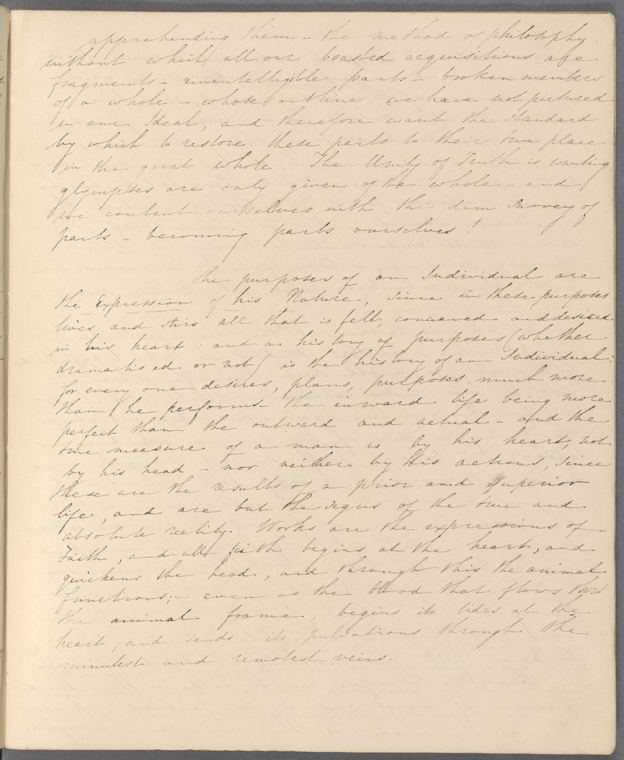 apprehending them - the method of philosophy
without which, all our boasted acquisitions are
fragments - unintelligible parts - broken members
of a whole - whose outline we have not pictured
in our Ideal, and therefore want the standard
by which to restore these parts to their true place
in the great whole. The Unity of Truth is wanting
glympses are only given of the whole and
we content ourselves with this dim survey of
parts - becoming parts ourselves!
The purposes of an Individual are
the Expression of his Nature, since in these purposes
lives and stirs all that is felt, conceived and desired
in his heart: and a history of purposes (whether
dramatised or not) is the history of an Individual:
for every one desires, plans, purposes much more
than he performs - the inward life being more
perfect than the outward and actual - and the
true measure of a man is by his heart, not
by his head - nor neither by his actions, since
these are the results of a prior and superior
life, and are but the signs of the true and
absolute reality. Works are the expressions of
Faith, and all faith begins at the heart, and
quickens the head, and through this the animal
functions; - even as the blood that flows thro'
the animal frame, begins its tides at the
heart, and sends its pulsations through the
minutest and remotest veins.